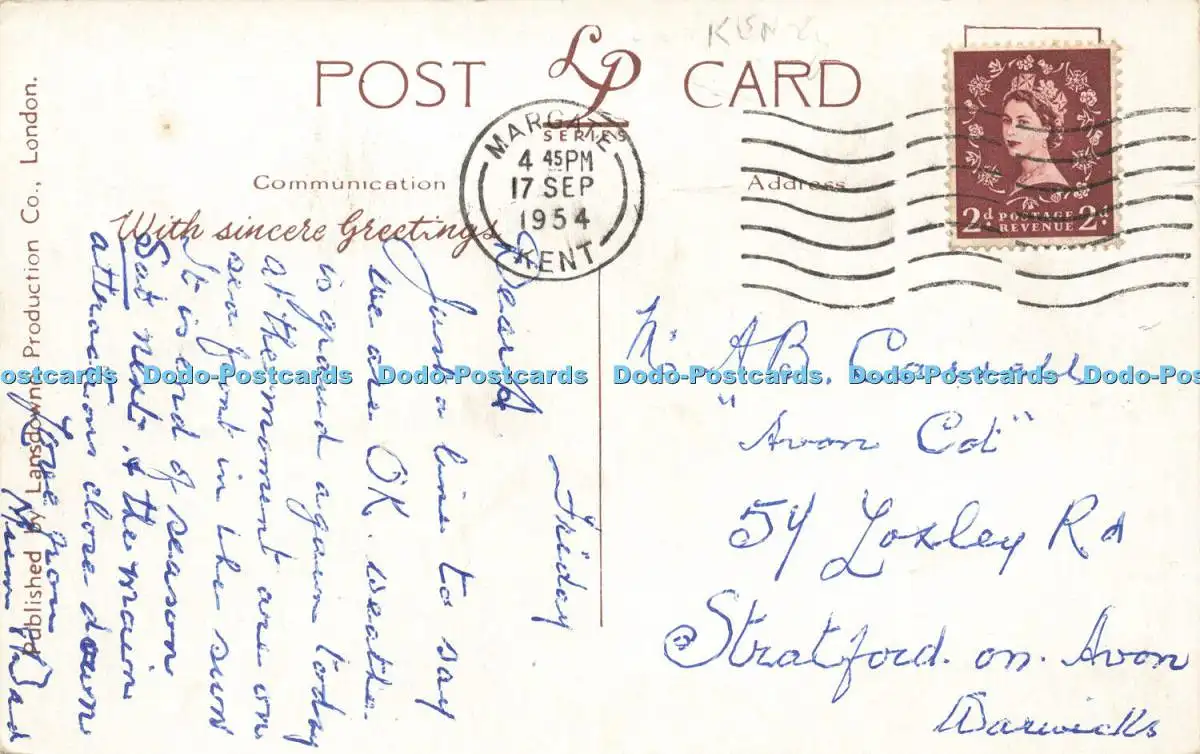 KENT
POST CARD
LP
SERIES
MARGATE
4 45PM
17 SEP
1954
KENT
2d POSTAGE 2d
REVENUE
Communication
Address
With sincere Greetings
Published by Lansdowne Production Co., London.
Friday
Dear
Just a line to say
we are OK. weather
is grand again today
at the moment are on
sea front in the sun
It is end of season
Sat next & the main
attractions close down
Love from
Mum & Dad
A B.
"Avon Cot"
54 Loxley Rd
Stratford. on. Avon
Warwicks
Dodo-Postcards Dodo-Postcards Dodo-Postcards Dodo-Postcards Dodo-Postcards Dodo-Po